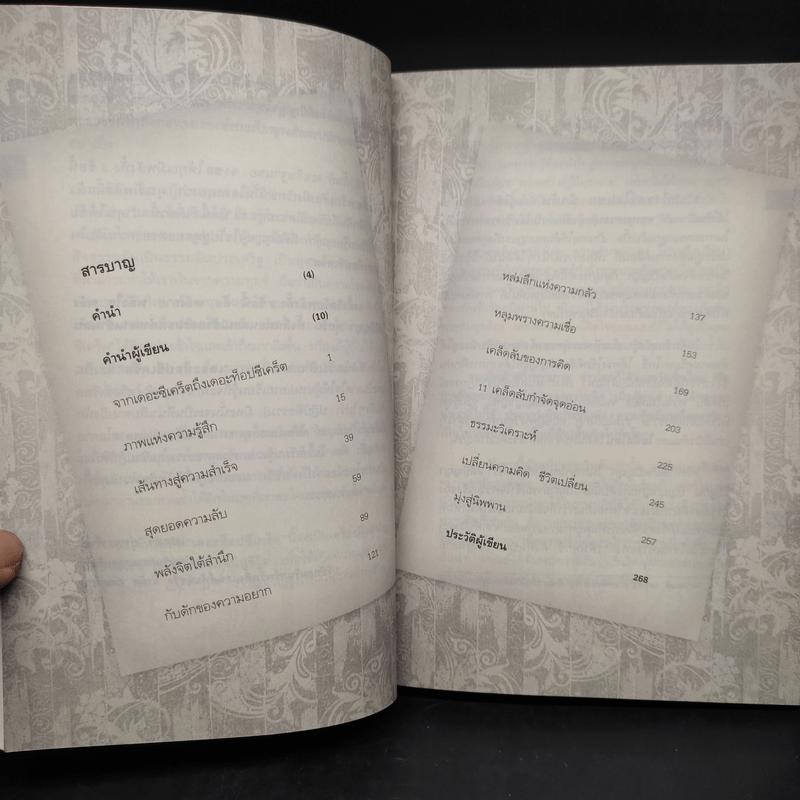 สารบาญ
คำนำ (4)
คำนำผู้เขียน (10)
จากเดอะซีเคร็ตถึงเดอะท็อปซีเคร็ต 1
ภาพแห่งความรู้สึก 15
เส้นทางสู่ความสำเร็จ 39
สุดยอดความลับ 59
พลังจิตใต้สำนึก 89
กับดักของความอยาก 121
หล่มลึกแห่งความกลัว 137
หลุมพรางความเชื่อ 153
เคล็ดลับของการคิด 169
11 เคล็ดลับกำจัดจุดอ่อน 203
ธรรมะวิเคราะห์ 225
เปลี่ยนความคิด ชีวิตเปลี่ยน 245
มุ่งสู่นิพพาน 257
ประวัติผู้เขียน 268